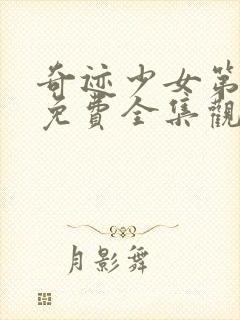 奇迹少女第
免費全集觀
月影舞